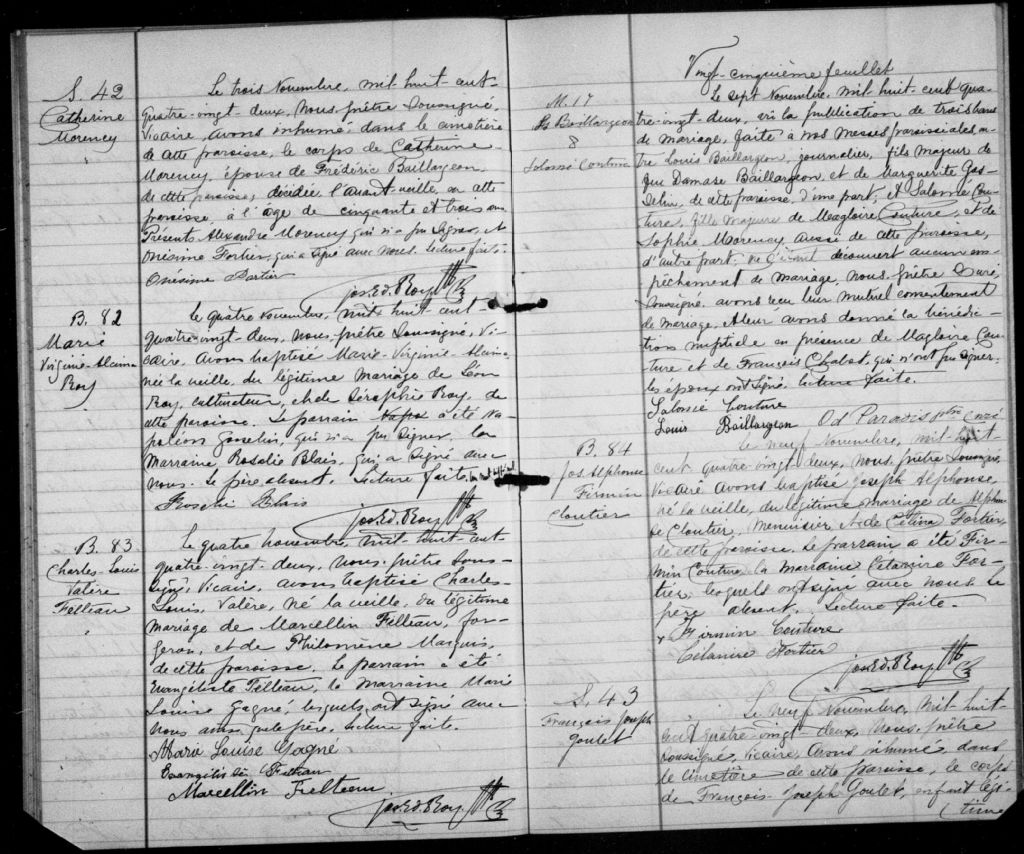 S. 42
Catherine
Morency
Le trois Novembre, mil huit cent
quatre-vingt-deux, Nous, prêtre soussigné,
Vicaire, avons inhumé dans le cimetière
de cette paroisse, le corps de Catherine
Morency, épouse de Frédéric Baillargeon,
de cette paroisse, décédée l'avant-veille, en cette
paroisse, à l'âge de cinquante et trois ans
Présents Alexandre Morency qui n'a pu signer, et
Onésime Fortier, qui a signé avec nous. Lecture faite.
Onésime Fortier
Jos. Ed. Roy Ptre
B. 82
Marie
Virginie-Alaina
Roy
Le quatre novembre, mil huit cent-
quatre-vingt-deux, nous, prêtre soussigné, Vi-
caire, avons baptisé Marie-Virginie-Alaina
née la veille, du légitime mariage de Léon
Roy, cultivateur, et de Séraphie Roy, de
cette paroisse. Le parrain a été Na-
poléon Gosselin, qui n'a pu signer, la
Marraine Rosalie Blais, qui a signé avec
nous. Le père absent. Lecture faite.
Rosalie Blais
Jos. Ed. Roy Ptre
B. 83
Charles-Louis
Valère
Filteau
Le quatre novembre, mil huit cent
quatre-vingt-deux, nous, prêtre sous-
signé, Vicaire, avons baptisé Charles-
Louis, Valère, né la veille, du légitime
mariage de Marcellin Filteau, for-
geron, et de Philomène Marquis,
de cette paroisse. Le parrain a été
Evangéliste Filteau, la marraine Marie
Louise Gagné, lesquels ont signé avec
nous ainsi que le père, lecture faite.
Marie Louise Gagné
Evangéliste Filteau
Marcellin Filteau
Jos. Ed. Roy Ptre
Vingt-cinquième feuillet
M. 17
Ls Baillargeon
&
Salomé Couture
Le sept Novembre, mil huit cent qua-
tre-vingt-deux, vu la publication de trois bans
de mariage, faite à nos Messes paroissiales, en-
tre Louis Baillargeon, journalier, fils majeur de
feu Damase Baillargeon, et de Marguerite Gos-
selin, de cette paroisse, d'une part, et Salomé Cou-
ture, fille majeure de Magloire Couture, et de
Sophie Morency aussi de cette paroisse,
d'autre part; ne s'étant découvert aucun em-
pêchement de mariage, nous, prêtre Curé,
soussigné, avons reçu leur mutuel consentement
de mariage, et leur avons donné la bénédic-
tion nuptiale en presence de Magloire Cou-
ture et de François Chabot, qui n'ont pu signer
les époux ont signé, lecture faite.
Salomé Couture
Louis Baillargeon Od Paradis ptre curé
B. 84
Jos. Alphonse
Firmin
Cloutier
Le neuf Novembre, mil-huit-
cent quatre-vingt-deux, nous, prêtre soussigné,
Vicaire avons baptisé Joseph Alphonse,
né la veille, du légitime mariage de Alphon-
se Cloutier, menuisier et de Célina Fortier,
de cette paroisse. Le parrain a été Fir-
min Couture, la marraine Célanire For-
tier, lesquels ont signé avec nous. Le
père absent. Lecture faite.
Firmin Couture
Célanire Fortier
Jos. Ed. Roy Ptre
S. 43
François Joseph
Goulet
Le neuf Novembre, mil huit
cent quatre-vingt-deux, Nous, prêtre
soussigné, vicaire, avons inhumé dans
le cimetière de cette paroisse, le corps
de François-Joseph Goulet, enfant légi-
time